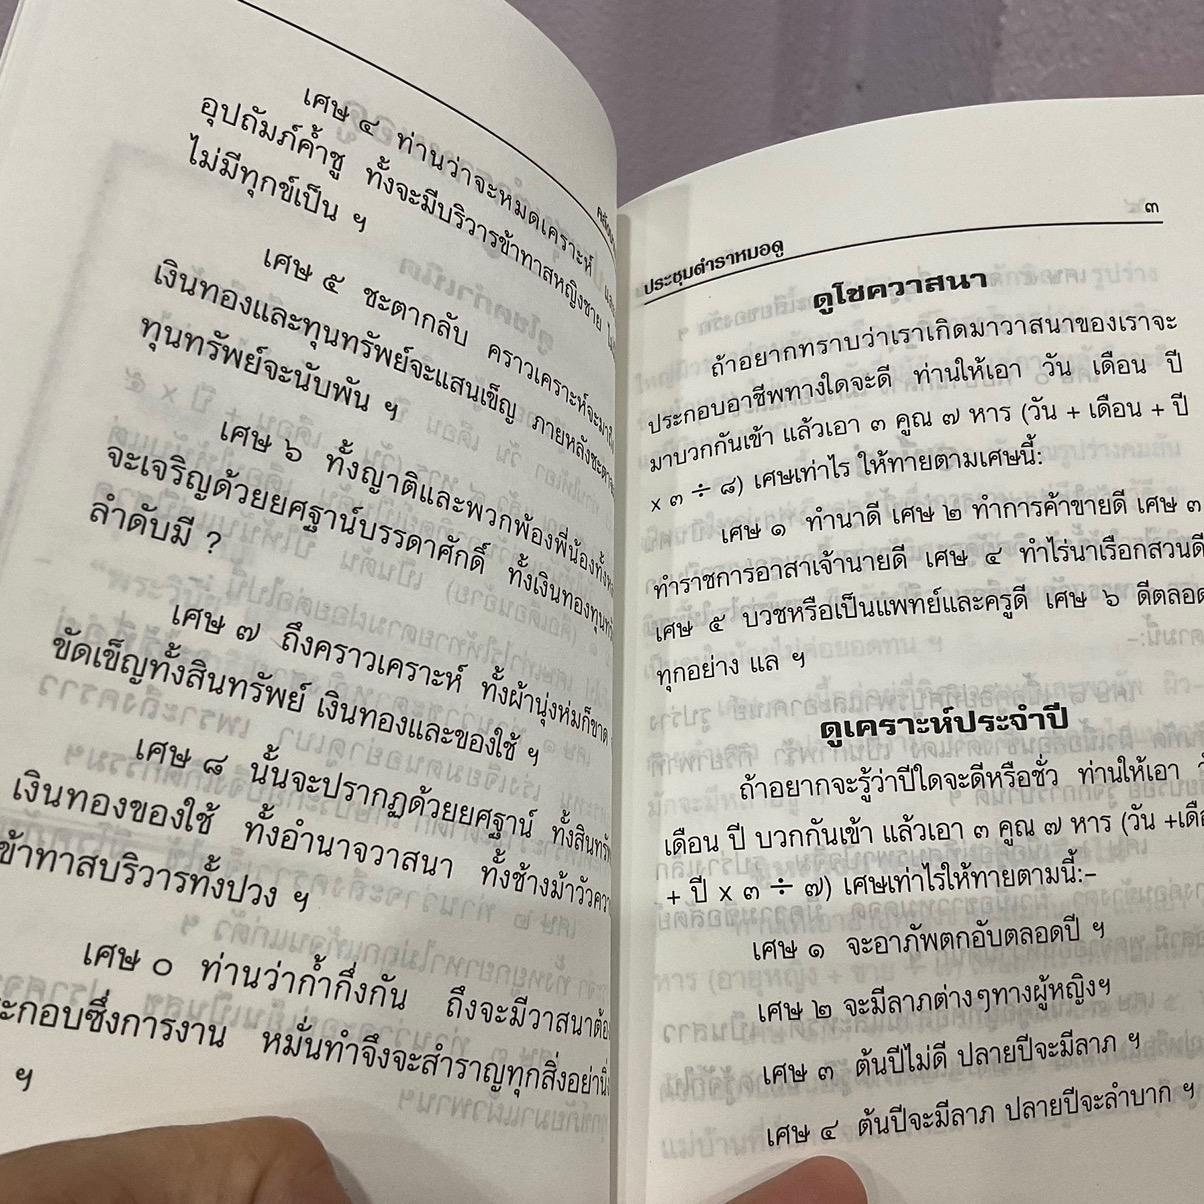 เศษ ๔ ท่านว่าจะหมดเคราะห์
อุปถัมภ์ค้ำชู ทั้งจะมีบริวารข้าทาสหญิงชาย
ไม่มีทุกข์เป็น ฯ
เศษ ๕ ชะตากลับ คราวเคราะห์จะมาถึง
เงินทองและทุนทรัพย์จะแสนเข็ญ ภายหลังชะตา
ทุนทรัพย์จะนับพัน ฯ
เศษ ๖ ทั้งญาติและพวกพ้องพี่น้อง
จะเจริญด้วยยศฐาน์บรรดาศักดิ์ ทั้งเงินทอง
ลำดับมี ?
เศษ ๗ ถึงคราวเคราะห์ ทั้งผ้านุ่งห่มก็ขาด
ขัดเข็ญทั้งสินทรัพย์ เงินทองและของใช้ ฯ
เศษ ๘ นั้นจะปรากฏด้วยยศฐาน์ ทั้งสินทรัพ
เงินทองของใช้ ทั้งอำนาจวาสนา ทั้งช้างม้าวัวควา
ข้าทาสบริวารทั้งปวง ฯ
เศษ ๐ ท่านว่าก้ำกึ่งกัน ถึงจะมีวาสนา
ะกอบซึ่งการงาน หมั่นทำจึงจะสำราญทุกสิ่ง
ฯ
ประชุมตำราหมอดู ๓
ดูโชควาสนา
ถ้าอยากทราบว่าเราเกิดมาวาสนาของเราจะ
ประกอบอาชีพทางใดจะดี ท่านให้เอา วัน เดือน ปี
มาบวกกันเข้า แล้วเอา ๓ คูณ ๗ หาร (วัน + เดือน + ปี
x ๓ ÷ ๘) เศษเท่าไร ให้ทายตามเศษนี้:
เศษ ๑ ทำนาดี เศษ ๒ ทำการค้าขายดี เศษ ๓
ทำราชการอาสาเจ้านายดี เศษ ๔ ทำไร่นาเรือกสวนดี
เศษ ๕ บวชหรือเป็นแพทย์และครูดี เศษ ๖ ดีตลอด
ทุกอย่าง แล ฯ
ดูเคราะห์ประจำปี
ถ้าอยากจะรู้ว่าปีใดจะดีหรือชั่ว ท่านให้เอา
เดือน ปี บวกกันเข้า แล้วเอา ๓ คูณ ๗ หาร (วัน +เดือ
+ ปี x ๓ ÷ ๗) เศษเท่าไรให้ทายตามนี้:–
เศษ ๑ จะอาภัพตกอับตลอดปี ฯ
เศษ ๒ จะมีลาภต่างๆทางผู้หญิงฯ
เศษ ๓ ต้นปีไม่ดี ปลายปีจะมีลาภ ฯ
เศษ ๔ ต้นปีจะมีลาภ ปลายปีจะลำบาก ฯ